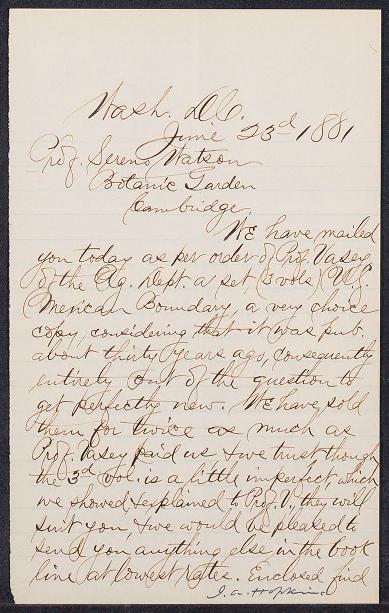 Wash. D.C.
June 23d 1881
Prof. Sereno Watson
Botanic Garden
Cambridge.
We have mailed
you today as per order of Prof. Vasey
of the Ag. Dept. a set (3 vols) U.S.
Mexican Boundary, a very choice
copy, considering that it was pub.
about thirty years ago, consequently
entirely out of the question to
get perfectly new. We have sold
them for twice as much as
Prof. Vasey paid us & we trust though
the 3d vol. is a little imperfect which
we showed & explained to Prof. V., they will
suit you, & we would be pleased to
send you anything else in the book
line at lowest rates. Enclosed find
J. A. Hopkins